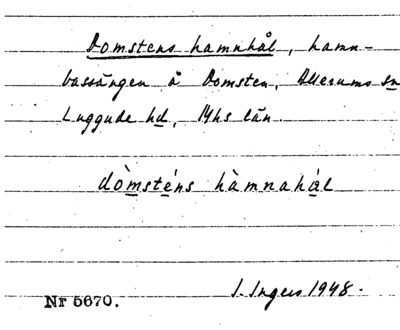 Domstens hamnhål, hamn-
bassängen å Domsten, Allerums sn
Luggude hd, Mhs län.
dòmsténs hàmnahál
Nr 5670.
I. Ingers 1948.